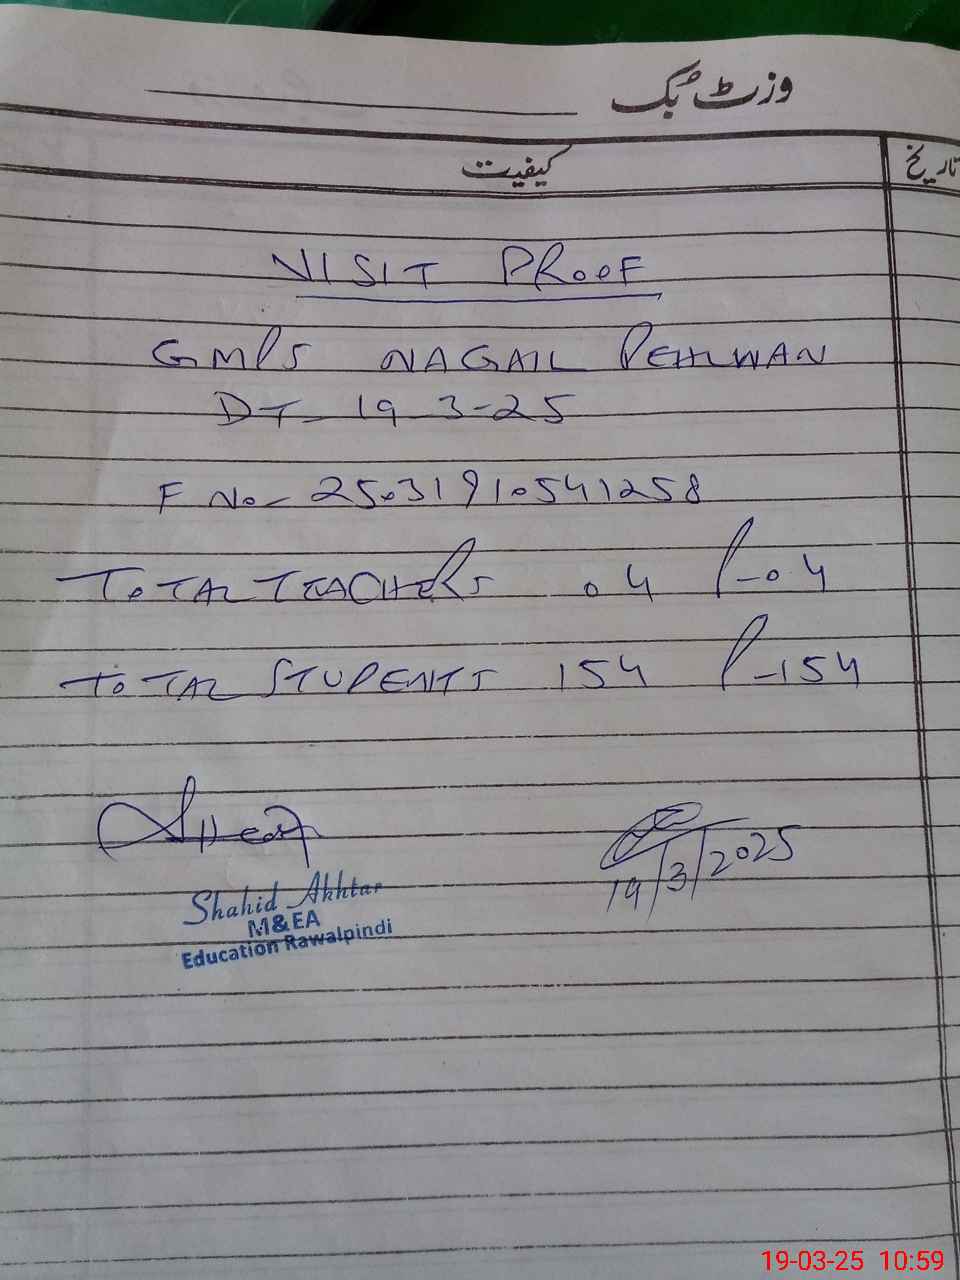 وزٹ بک
کیفیت تاریخ
VISIT PROOF
GMPS NAGAIL PEHLWAN
DT- 19 3-25
F No- 25031910541258
TOTAL TEACHERS 04 P-04
TOTAL STUDENTS 154 P-154
19/3/2025
Shahid Akhtar
M&EA
Education Rawalpindi
19-03-25 10:59